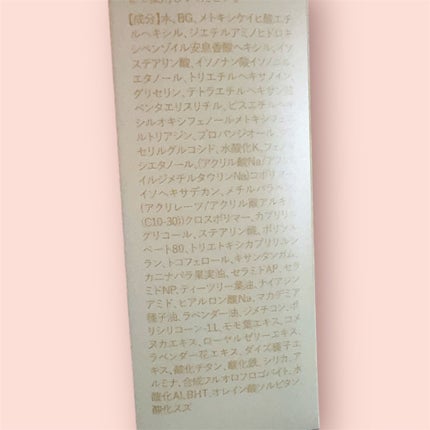 【成分】水、BG、メトキシケイヒ酸エチ
ルヘキシル、ジエチルアミノヒドロキ
シベンゾイル安息香酸ヘキシル、イソ
ステアリン酸、イソノナン酸イソノニル、
エタノール、トリエチルヘキサノイン、
グリセリン、テトラエチルヘキサン酸
ペンタエリスリチル、ビスエチルヘキ
シルオキシフェノールメトキシフェニ
ルトリアジン、プロパンジオール、グリ
セリルグルコシド、水酸化K、フェノキ
シエタノール、(アクリル酸Na/アクリロ
イルジメチルタウリンNa)コポリマー、
イソヘキサデカン、メチルパラベン、
(アクリレーツ/アクリル酸アルキル
(C10-30))クロスポリマー、カプリリル
グリコール、ステアリン酸、ポリソル
ベート80、トリエトキシカプリリルシ
ラン、トコフェロール、キサンタンガム、
カニナバラ果実油、セラミドAP、セラ
ミドNP、ティーツリー葉油、ナイアシン
アミド、ヒアルロン酸Na、マカデミア
種子油、ラベンダー油、ジメチコン、ポ
リシリコーン-11、モモ葉エキス、コメ
ヌカエキス、ローヤルゼリーエキス、
ラベンダー花エキス、ダイズ種子エ
キス、酸化チタン、酸化鉄、シリカ、ア
ルミナ、合成フルオロフロゴパイト、水
酸化Al、BHT、オレイン酸ソルビタン、
酸化スズ